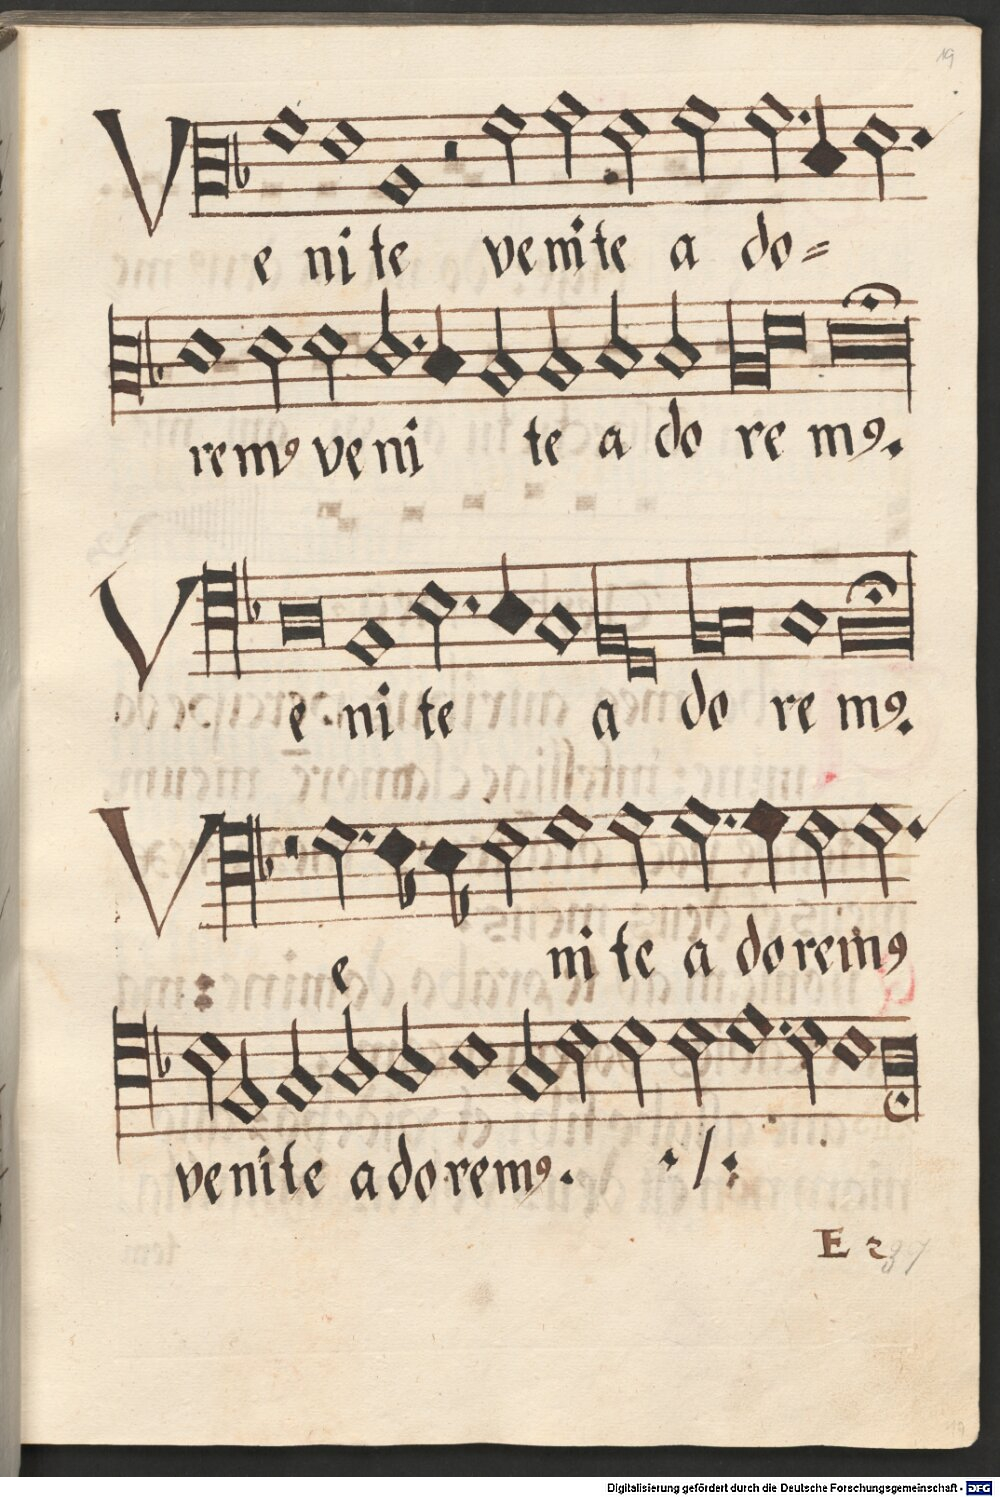 19
Ve ni te venite a do=
remꝰ ve ni te a do re mꝰ.
Ve ni te a do re mꝰ.
Ve ni te a doremꝰ
venite adoremꝰ. ·/:
E 2 37
19
Digitalisierung gefördert durch die Deutsche Forschungsgemeinschaft - DFG